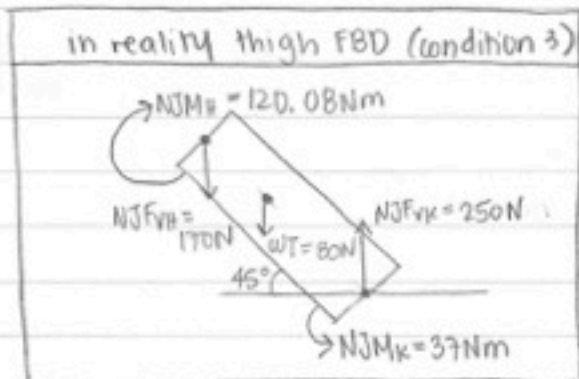 in reality thigh FBD (condition 3)
NJM_H = 120.08Nm
NJF_VH =
170N
WT=80N
NJF_VK = 250N
45°
NJM_K = 37Nm